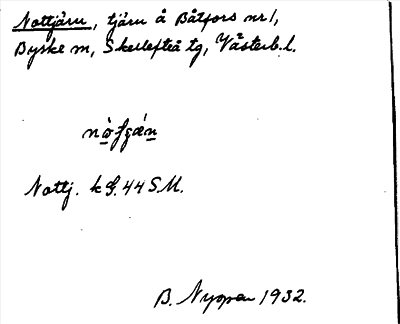 Nottjärn, tjärn å Båtfors nr 1,
Byske sn, Skellefteå tg, Västerb. l.
Nottj. k S. 44 S.M.
B. Nyman 1932.